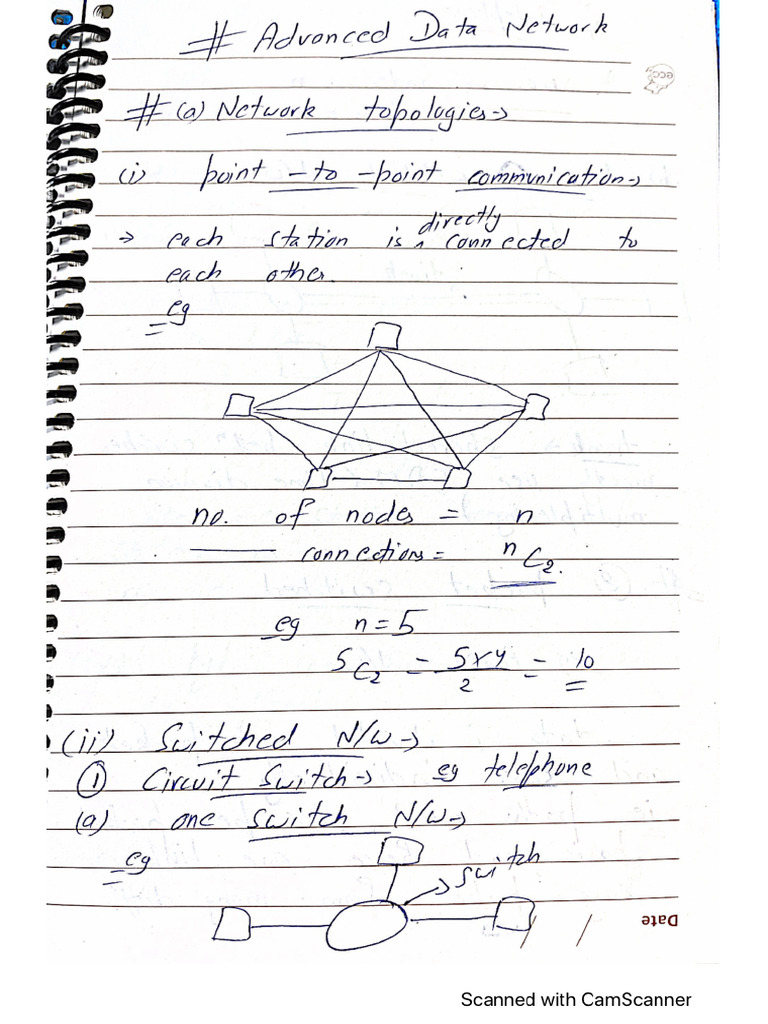 # Advanced Data Network
eco
# (a) Network topologies→
(i) point -to -point communication→
→ each station is directly connected to
each other.
eg
no. of nodes = n
—— connections = nC2.
eg n = 5
5C2 = 5x4/2 = 10
(ii) Switched N/W→
① Circuit Switch→ eg telephone
(a) one switch N/W→
eg
switch
Date
Scanned with CamScanner